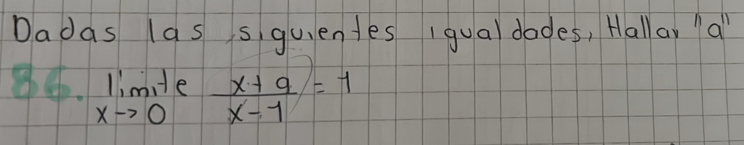 Dadas las siguientes igualdades, Hallar "a"
86. límite x+a = 1
x→0 x-1